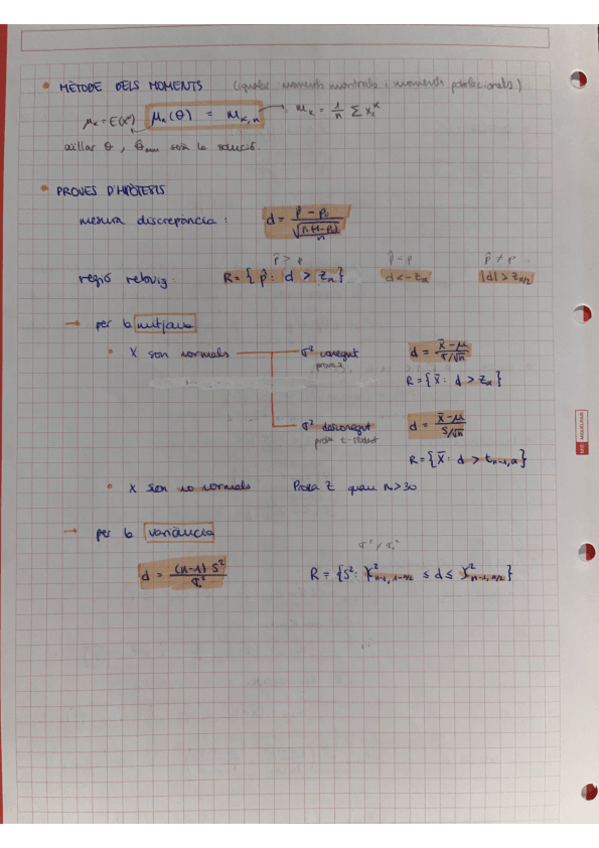 • MÈTODE DELS MOMENTS (igualar moments mostrals i moments poblacionals.)
μₖ = E(Xᵏ) μₖ(θ) = mₖ,ₙ → mₖ = 1/n Σ xᵢᵏ
aïllar θ, θ̂ₘₘ serà la solució.
• PROVES D'HIPÒTESIS
mesura discrepància: d = (p̂ - p₀) / √(p₀(1-p₀)/n)
p̂ > p p̂ < p p̂ ≠ p
regió rebuig: R = { p̂ : d > z_α } d < -z_α |d| > z_α/2
→ per la mitjana
• X són normals σ² conegut d = (x̄ - μ) / (σ/√n)
prova z
R = { x̄ : d > z_α }
σ² desconegut d = (x̄ - μ) / (s/√n)
prova t-student
R = { x̄ : d > t_n-1,α }
• X són no normals Prova Z quan n > 30
→ per la variància
σ² ≠ σ₀²
d = (n-1) s² / σ₀² R = { s² : χ²_n-1, 1-α/2 ≤ d ≤ χ²_n-1, α/2 }